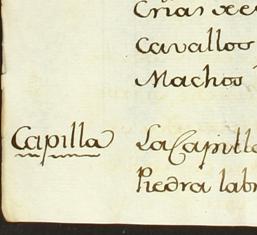 Crias de
Cavallos
Machos
Capilla La Capill
Piedra lab